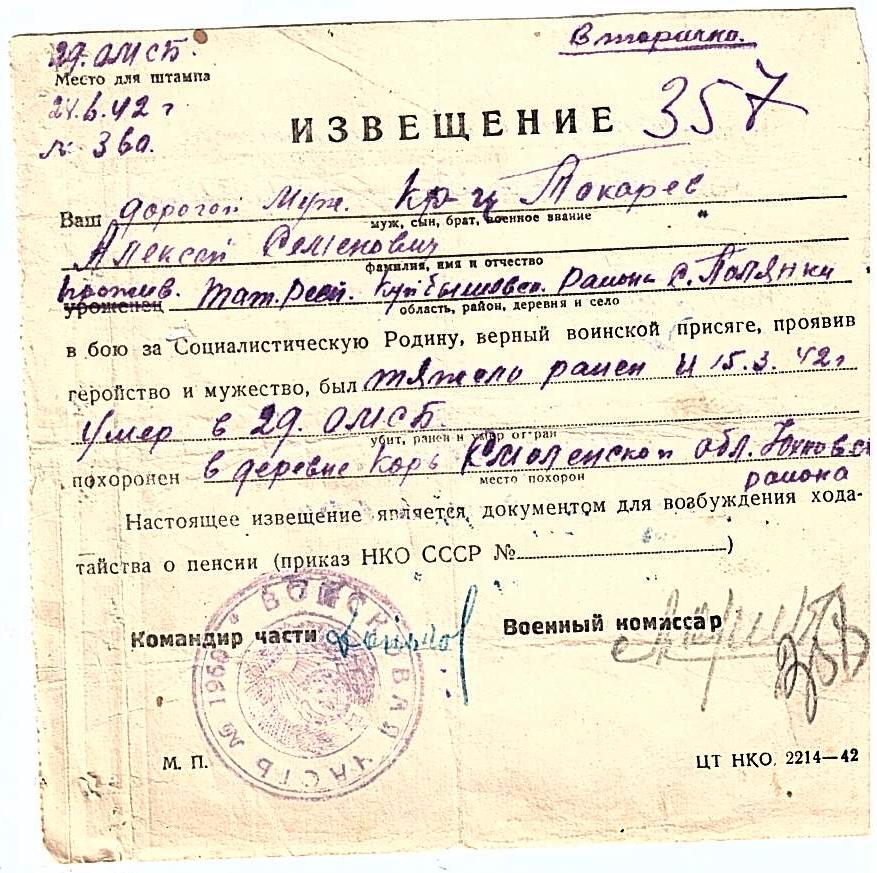 29. ОМСБ.
Вторично.
Место для штампа
24.6.42 г
№ 360.
ИЗВЕЩЕНИЕ 357
Ваш дорогой Муж. Кр-ц Токарев
муж, сын, брат, военное звание
Алексей Семенович
фамилия, имя и отчество
прожив. Тат. Респ. Куйбышевск. района с. Полянки
уроженец
область, район, деревня и село
в бою за Социалистическую Родину, верный воинской присяге, проявив
геройство и мужество, был тяжело ранен и 15.3.42 г
умер в 29. ОМСБ.
убит, ранен и умер от ран
похоронен в деревне Корь Смоленской обл. Юхновск
место похорон
района
Настоящее извещение является документом для возбуждения хода-
тайства о пенсии (приказ НКО СССР № )
Командир части
Военный комиссар
358
ВОИНСКОВАЯ ЧАСТЬ №
М. П.
ЦТ НКО. 2214—42